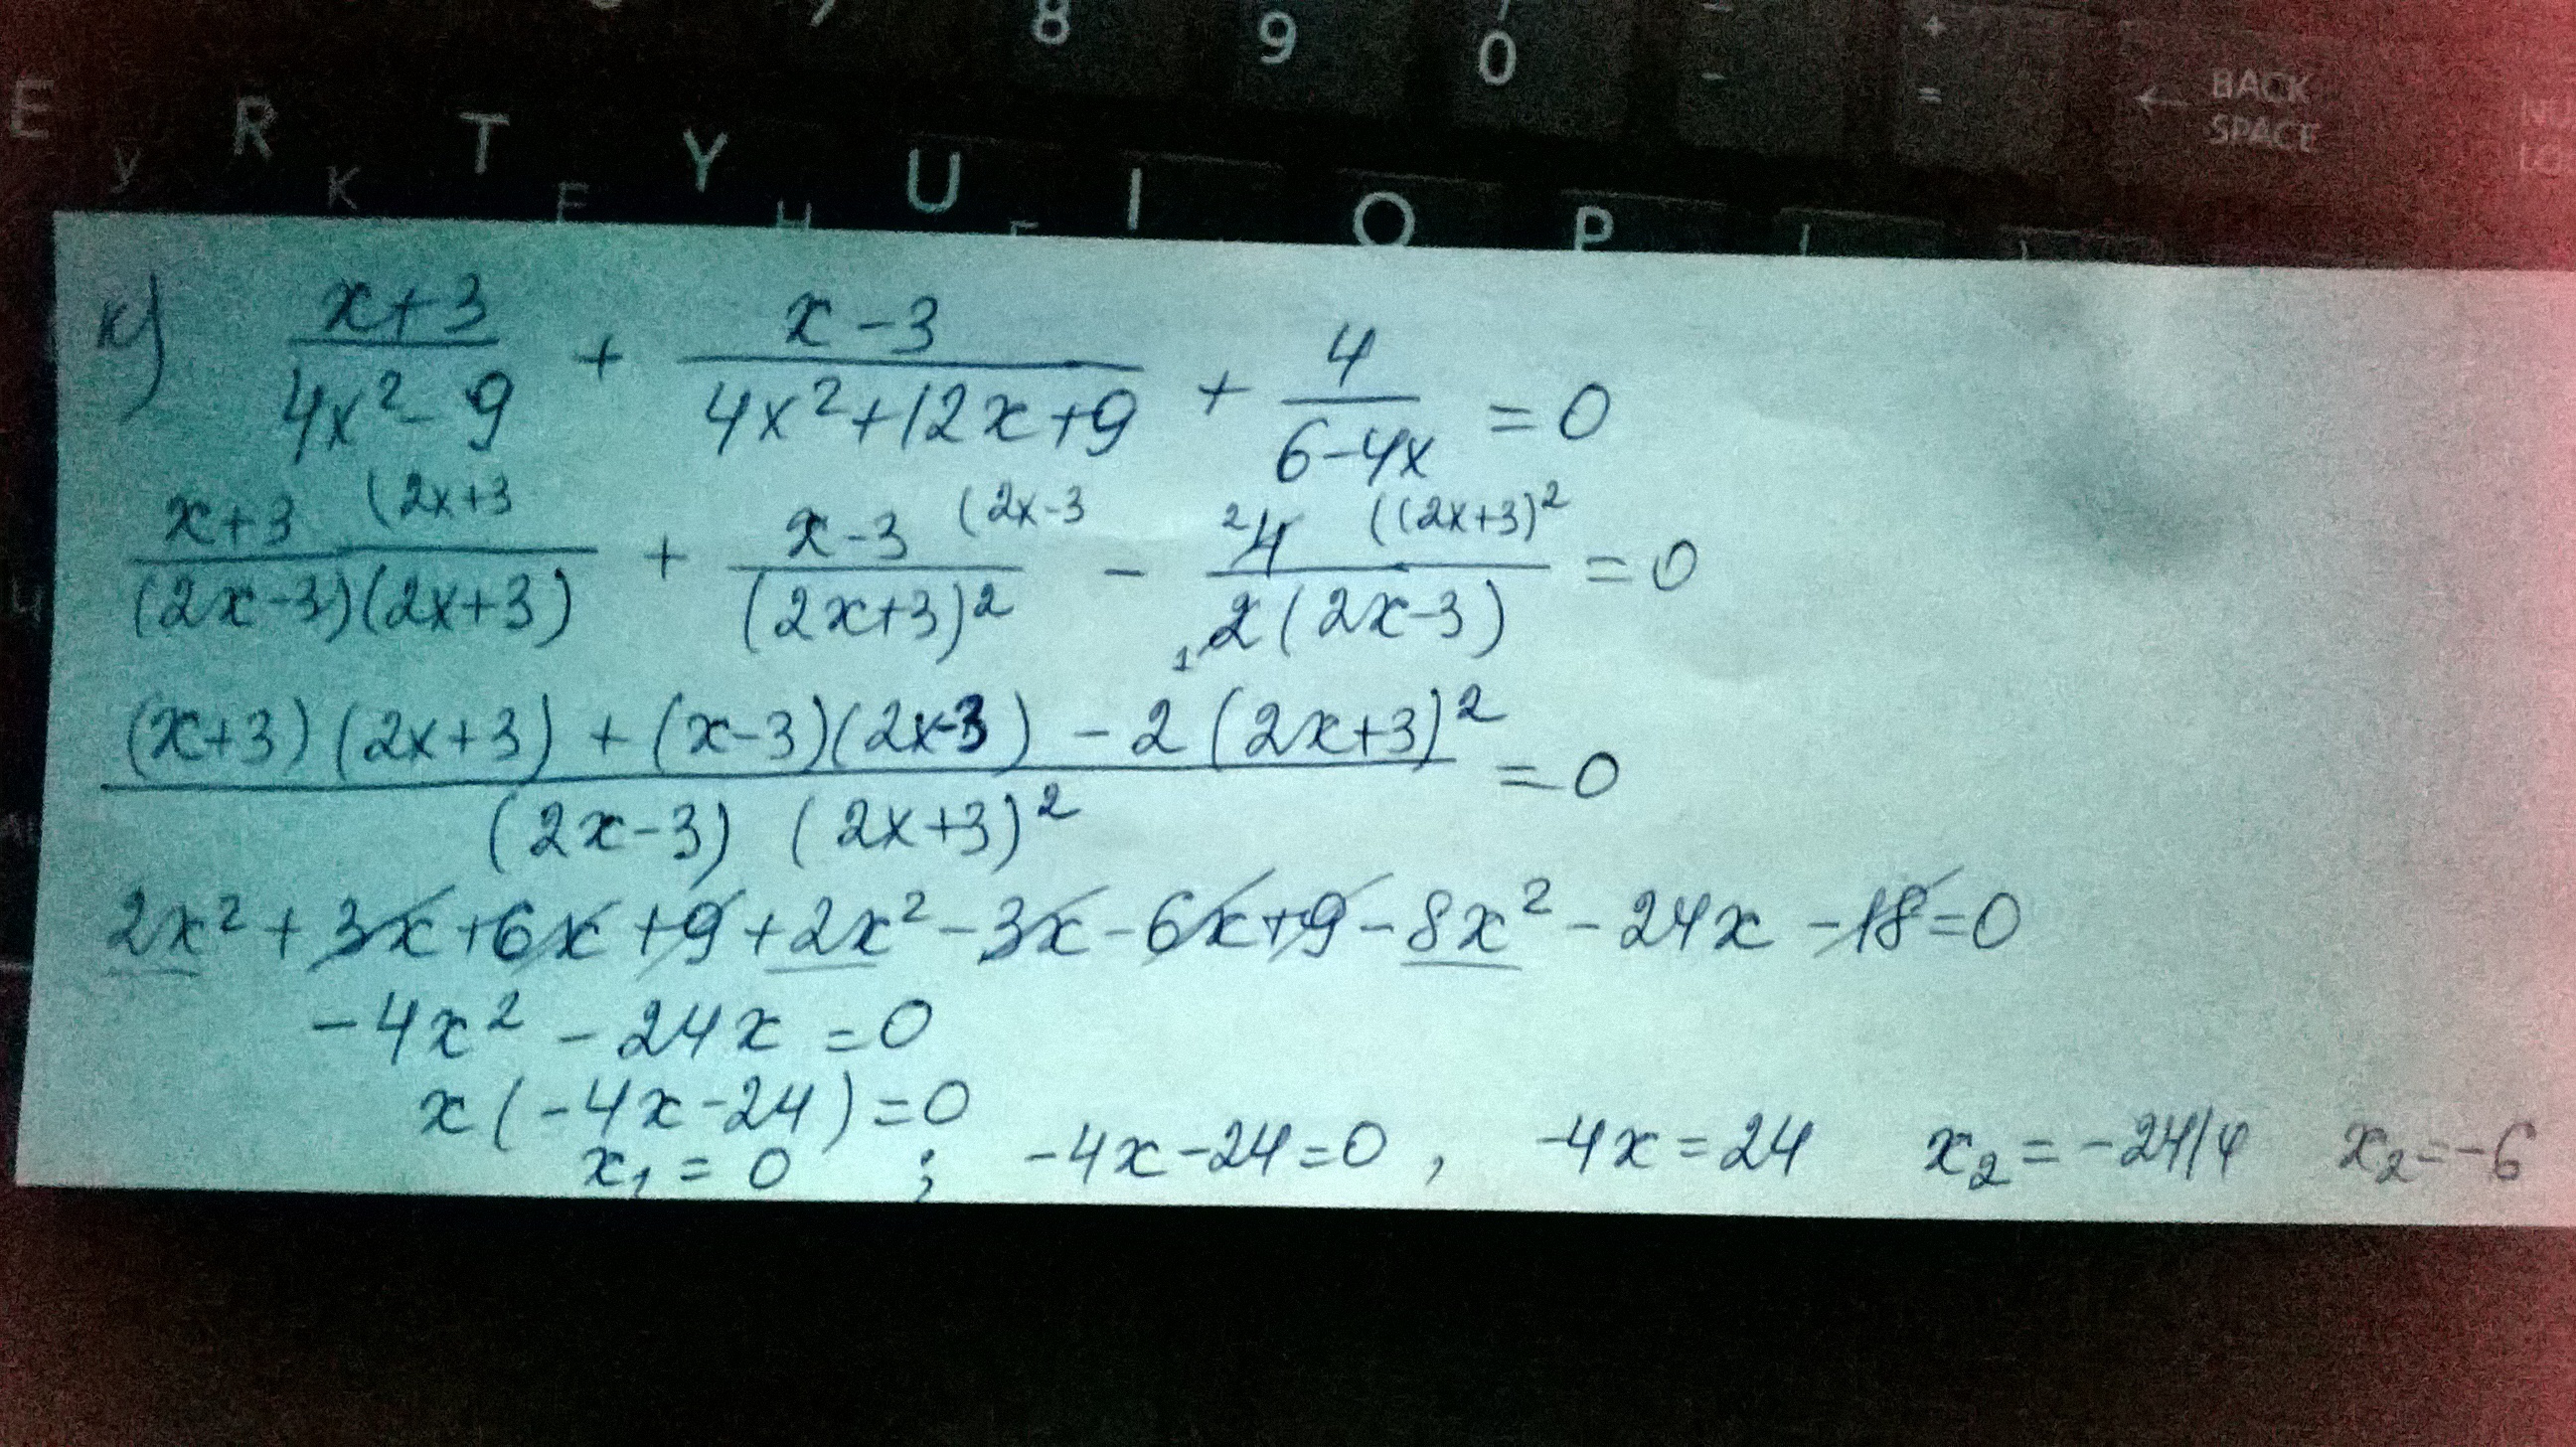 8 9 0 - + =
← BACK SPACE
E R T Y U I O P
У К Е Н
к) (x+3)/(4x²-9) + (x-3)/(4x²+12x+9) + 4/(6-4x) = 0
(x+3 (2x+3)/((2x-3)(2x+3)) + (x-3 (2x-3)/((2x+3)²) - (²4 ((2x+3)²)/(₁2(2x-3)) = 0
((x+3)(2x+3) + (x-3)(2x-3) - 2(2x+3)²)/((2x-3)(2x+3)²) = 0
2x² + 3x + 6x + 9 + 2x² - 3x - 6x + 9 - 8x² - 24x - 18 = 0
-4x² - 24x = 0
x(-4x-24) = 0
x₁ = 0 ; -4x-24=0 , -4x=24 x₂ = -24/4 x₂=-6